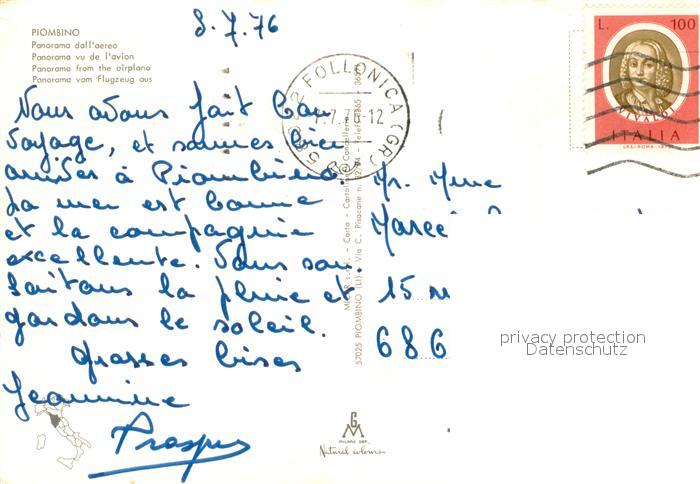 8.7.76
PIOMBINO
Panorama dall'aereo
Panorama vu de l'avion
Panorama from the airplane
Panorama vom Flugzeug aus
Nous avons fait bon
voyage, et sommes bien
arrivées à Piombino.
La mer est bonne
et la compagnie
excellente. Vous sou
haitons la pluie et
gardons le soleil.
Grosses bises
Jeannine
L. 100
VIVALDI
ITALIA
FOLLONICA (GR)
7.76-12
Mr. Mme
Marce
15
686
privacy protection
Datenschutz
57025 PIOMBINO (LI) - Via C. Pisacane n.
GM
MILANO
Natural colours